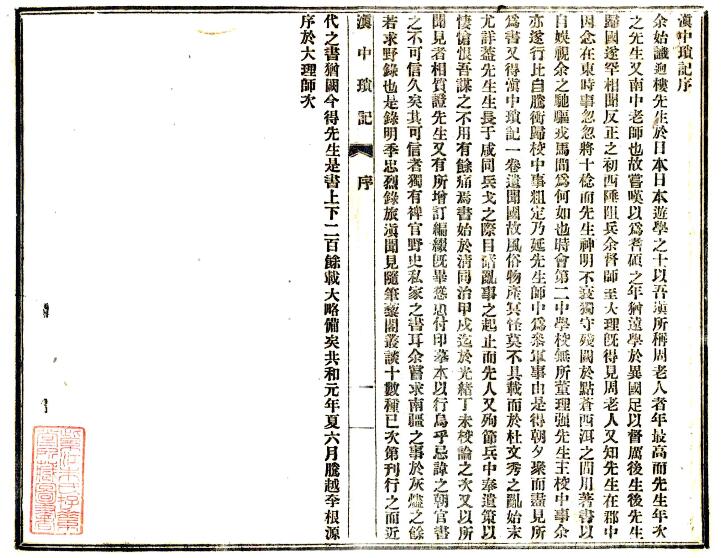 滇中瑣記序
余始識迤樓先生於日本日本遊學之士以吾滇所稱周老人者年最高而先生年次
之先生又南中老師也故嘗嘆以爲耆碩之年猶遠學於異國足以督厲後生後先生
歸國遂罕相聞反正之初西陲阻兵余督師至大理旣得見周老人又知先生在郡中
因念在東時事忽忽將十稔而先生神明不衰獨守殘闕於點蒼西洱之間用著書以
自娛視余之馳驅戎馬間爲何如也時會第二中學校無所董理强先生主校中事余
亦遂行比自騰衝歸校中事粗定乃延先生師中爲叅軍事由是得朝夕聚而盡見所
爲書又得滇中瑣記一卷遺聞國故風俗物產冥怪莫不具載而於杜文秀之亂始末
尤詳蓋先生生長于咸同兵戈之際目睹亂事之起止而先人又殉節兵中奉遺策以
悽愴恨吾謀之不用有餘痛焉書始於淸同治甲戌迄於光緒丁未校論之次又以所
聞見者相質證先生又有所增訂編綴旣畢慫恿付印摹本以行烏乎忌諱之朝官書
之不可信久矣其可信者獨有稗官野史私家之書耳余嘗求南疆之事於灰燼之餘
若求野錄也是錄明季忠烈錄旅滇聞見隨筆藜閣叢談十數種已次第刊行之而近
滇中瑣記
序
一
代之書猶闕今得先生是書上下二百餘載大略備矣共和元年夏六月騰越李根源
序於大理師次